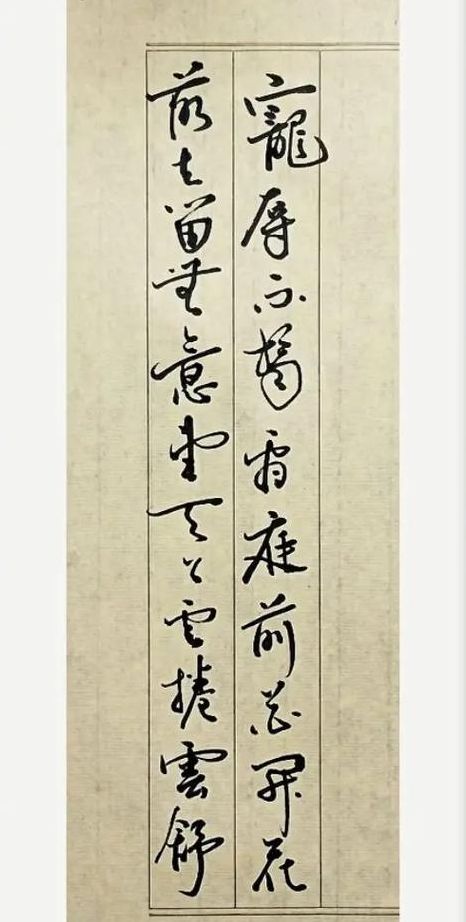 寵辱不驚看庭前花開花
落去留無意望天上雲捲雲舒